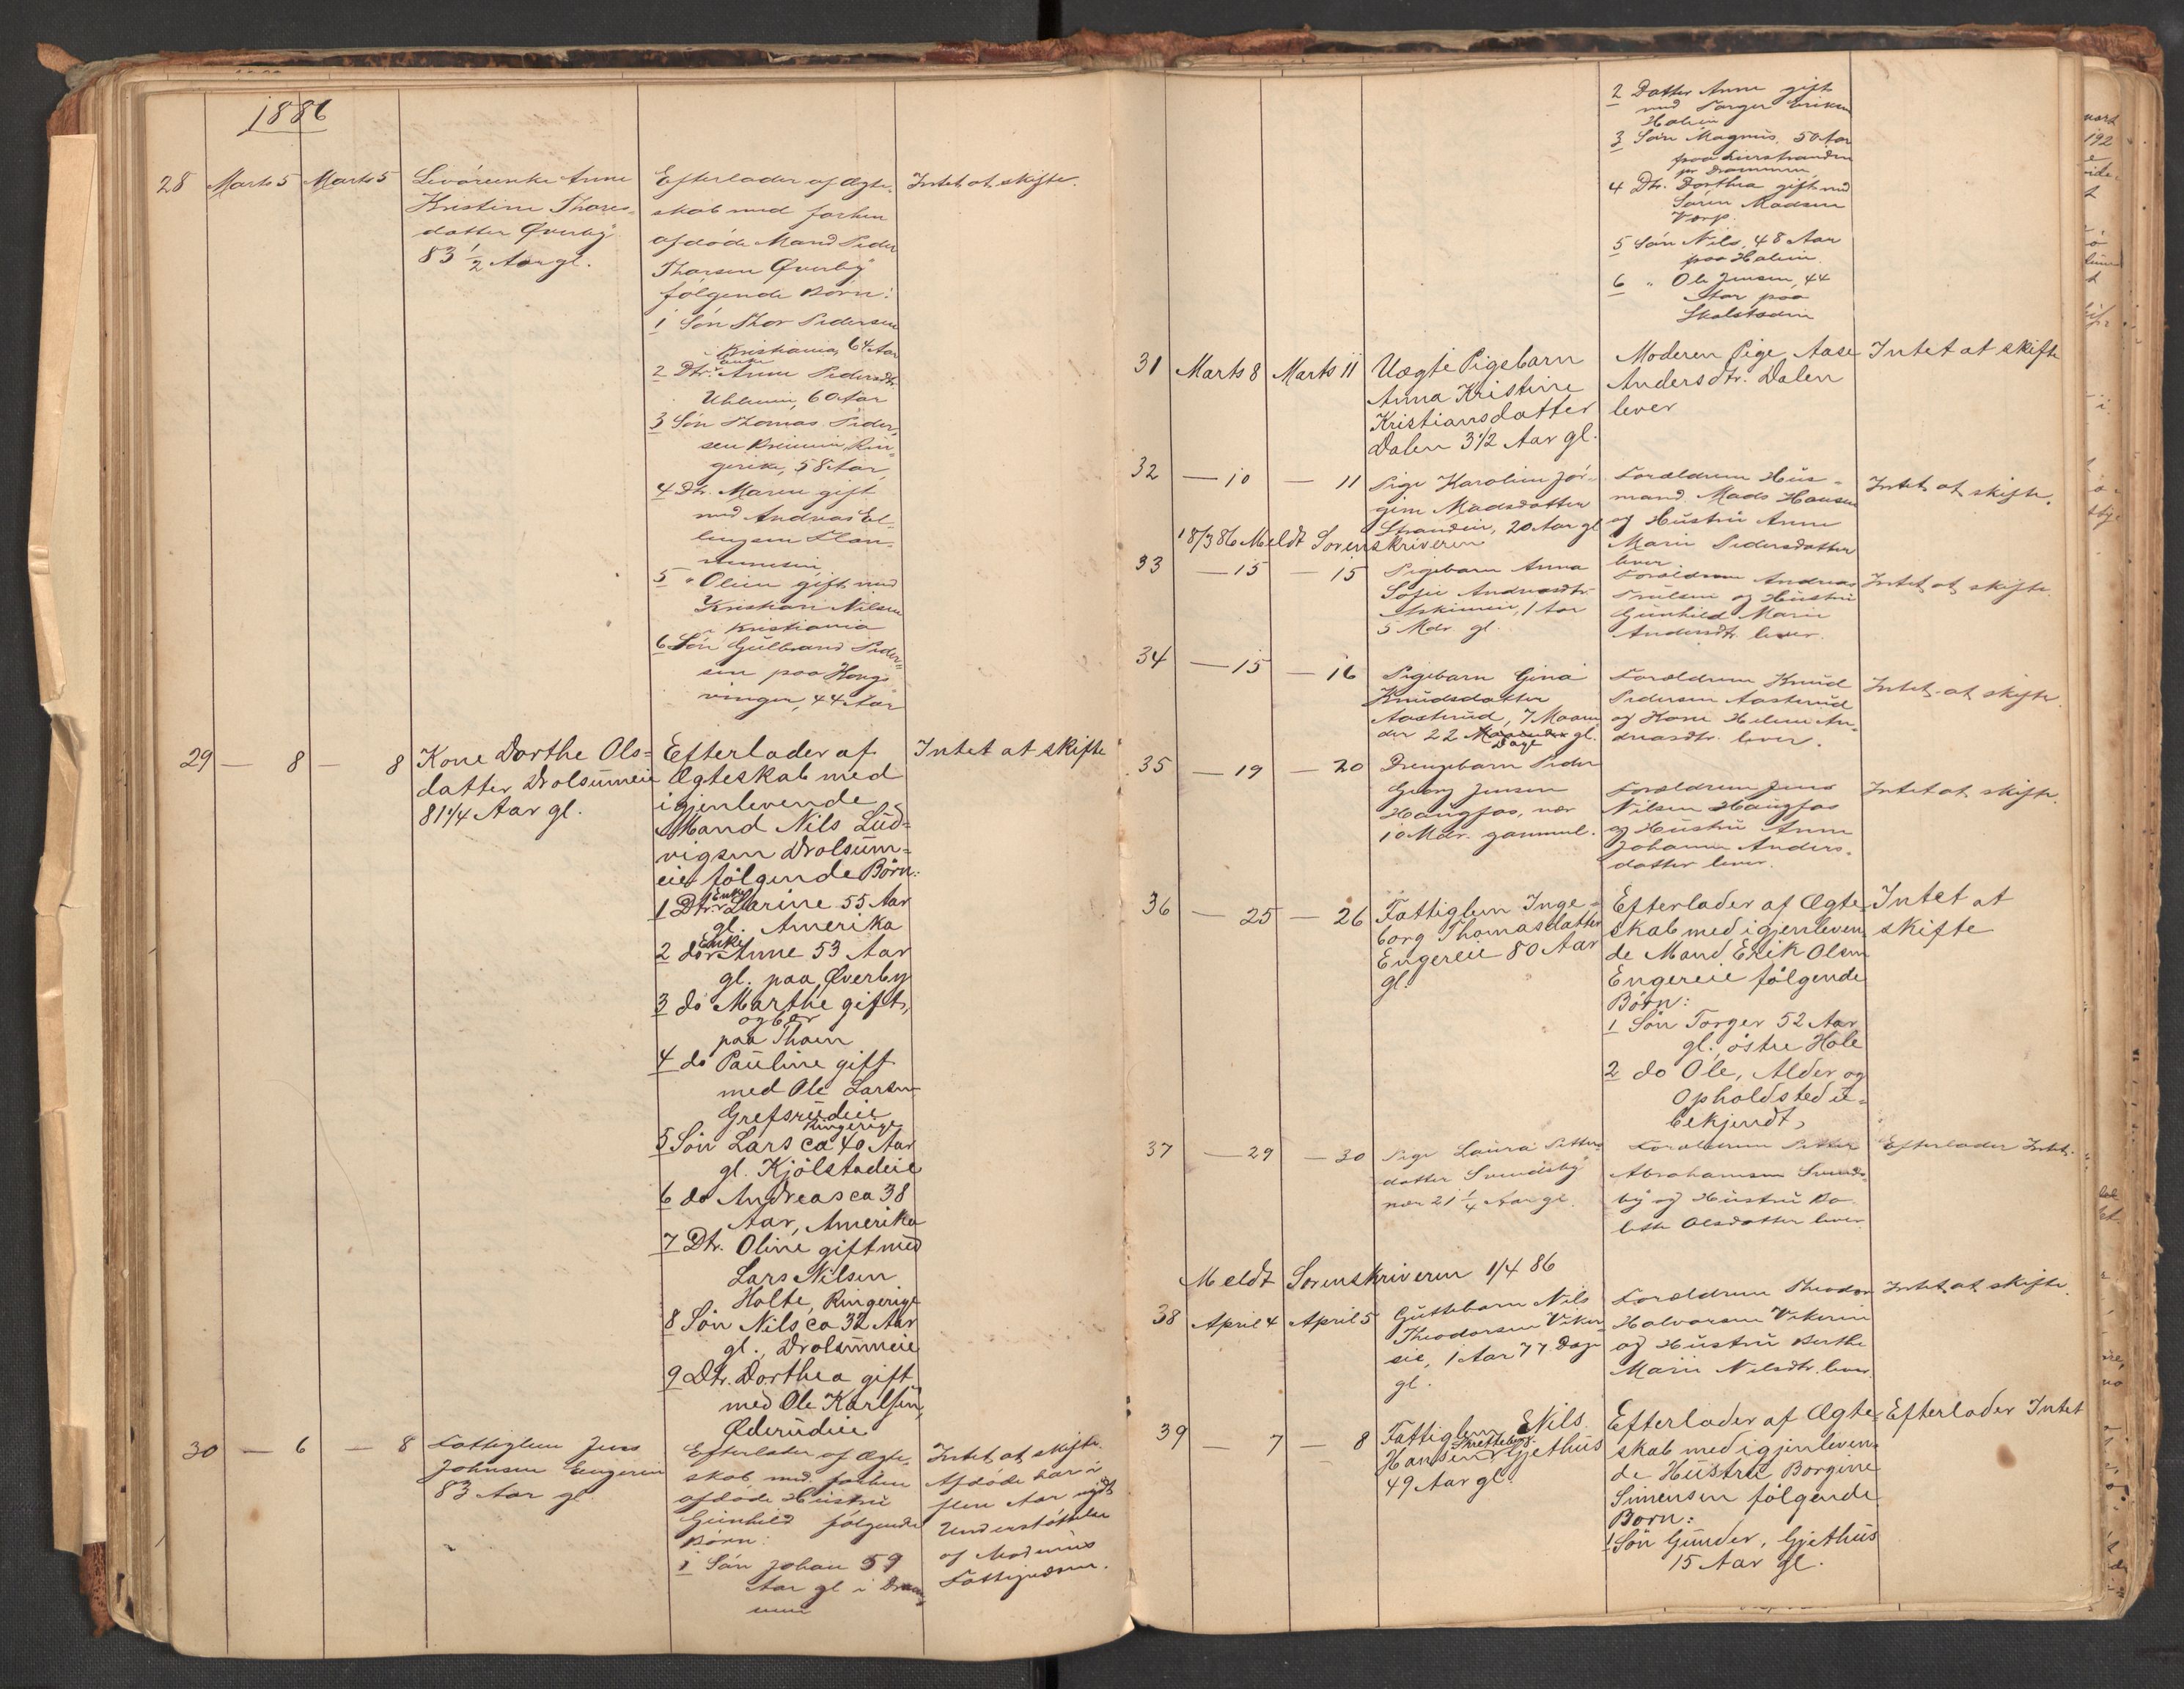 1886
28 Marts 5 Marts 5 Levöreenke Anne
Kristine Thores-
datter Øverby
83 1/2 Aar gl.
Efterlader af Ægte-
skab med forhen
afdöde Mand Peder
Thorsen Øverby
fölgende Börn:
1 Sön Thor Pedersen
i Kristiania, 64 Aar
2 Dtr. enke Anne Pedersdtr.
60 Aar
3 Sön Thomas Peder-
sen Ring-
gerike, 58 Aar
4 Dtr. Maren gift
med Andreas El-
lingsen
5 " Oline gift med
Kristian Nilsen
i Kristiania
6 Sön Gulbrand Peder-
sen paa Kongs-
vinger, 44 Aar
Intet at skifte.
29 — 8 — 8 Kone Dorthe Ols-
datter Drolsumeie
81 1/4 Aar gl.
Efterlader af
Ægteskab med
igjenlevende
Mand Nils Lud-
vigsen Drolsum-
eie fölgende Börn:
1 Dtr. Enke Larine 55 Aar
gl. Amerika
2 do Enke Anne 53 Aar
gl. paa Øverby
3 do Marthe gift,
og bor
paa Thoen
4 do Pauline gift
med Ole Larsen
Grefsrudeie
Ringerige
5 Sön Lars ca 40 Aar
gl. Kjölstadeie
6 do Andreas ca 38
Aar, Amerika
7 Dtr. Oline gift med
Lars Nilsen
Holte, Ringerige
8 Sön Nils ca 32 Aar
gl., Drolsumeie
9 Dtr. Dorthea gift
med Ole Karlsen,
Øderudeie
Intet at skifte
30 — 6 — 8 Fattiglem Jens
Johnsen Engereie
83 Aar gl.
Efterlader af Ægte-
skab med forhen
afdöde Hustru
Gunhild fölgende
Börn:
1 Sön Johan 59
Aar gl i Dram-
men
Intet at skifte.
Afdöde har i
flere Aar nydt
Understöttelse
af Modums
Fattigvæsen.
2 Datter Anne gift
med Torger Eriksen
Holein
3 Sön Magnus, 50 Aar
paa Lierstranden
pr Drammen
4 Dtr. Dorthea gift med
Sören Madsen
Vorp.
5 Sön Nils, 48 Aar
paa Holein.
6 " Ole Jensen, 44
Aar paa
Skalstadeie
31 Marts 8 Marts 11 Uægte Pigebarn
Anna Kristine
Kristiansdatter
Dalen 3 1/2 Aar gl.
Moderen Pige Aase
Andersdtr. Dalen
lever
Intet at skifte
32 — 10 — 11 Pige Karoline Jör-
gine Madsdatter
Strandeie, 20 Aar gl
Forældrene Hus-
mand Mads Hansen
og Hustru Anne
Marie Pedersdatter
lever.
Intet at skifte.
18/3 86 Meldt Sorenskriveren
33 — 15 — 15 Pigebarn Anna
Sofie Andreasdtr.
1 Aar
5 Mdr gl.
Forældrene Andreas
Truelsen og Hustru
Gunhild Marie
Andersdtr. lever.
Intet at skifte.
34 — 15 — 16 Pigebarn Gina
Knudsdatter
Aasterud, 7 Maane-
der 22 Dage gl.
Forældrene Knud
Pedersen Aasterud
og Kone Helene An-
dreasdtr. lever.
Intet at skifte.
35 — 19 — 20 Drengebarn Peder
Georg Jensen
Haugfos, nær
10 Mdr. gammel.
Forældrene Jens
Nilsen Haugfos
og Hustru Anne
Johanne Anders-
datter lever.
Intet at skifte.
36 — 25 — 26 Fattiglem Inge-
borg Thomasdatter
Engereie 80 Aar
gl.
Efterlader af Ægte-
skab med igjenleven
de Mand Erik Olsen
Engereie fölgende
Börn:
1 Sön Torger 52 Aar
gl., östre Hole
2 do Ole, Alder og
Opholdsted u-
bekjendt,
Intet at
skifte
37 — 29 — 30 Pige Laura Petters-
datter Svendsby
nær 21 1/4 Aar gl.
Forældrene Petter
Abrahamsen Svends-
by og Hustru Bo-
lette Olsdatter lever.
Efterlader Intet.
Meldt Sorenskriveren 1/4 86
38 April 4 April 5 Guttebarn Nils
Theodorsen Viker-
eie, 1 Aar 77 Dage
gl.
Forældrene Theodor
Halvorsen Vikereie
og Hustru Berthe
Marie Nilsdtr. lever.
Intet at skifte.
39 — 7 — 8 Fattiglem Nils
Hansen Skretteberg. Gjethus
49 Aar gl.
Efterlader af Ægte-
skab med igjenleven-
de Hustru Borgine
Simensen fölgende
Börn:
1 Sön Gunder, Gjethus
15 Aar gl.
Efterlader Intet